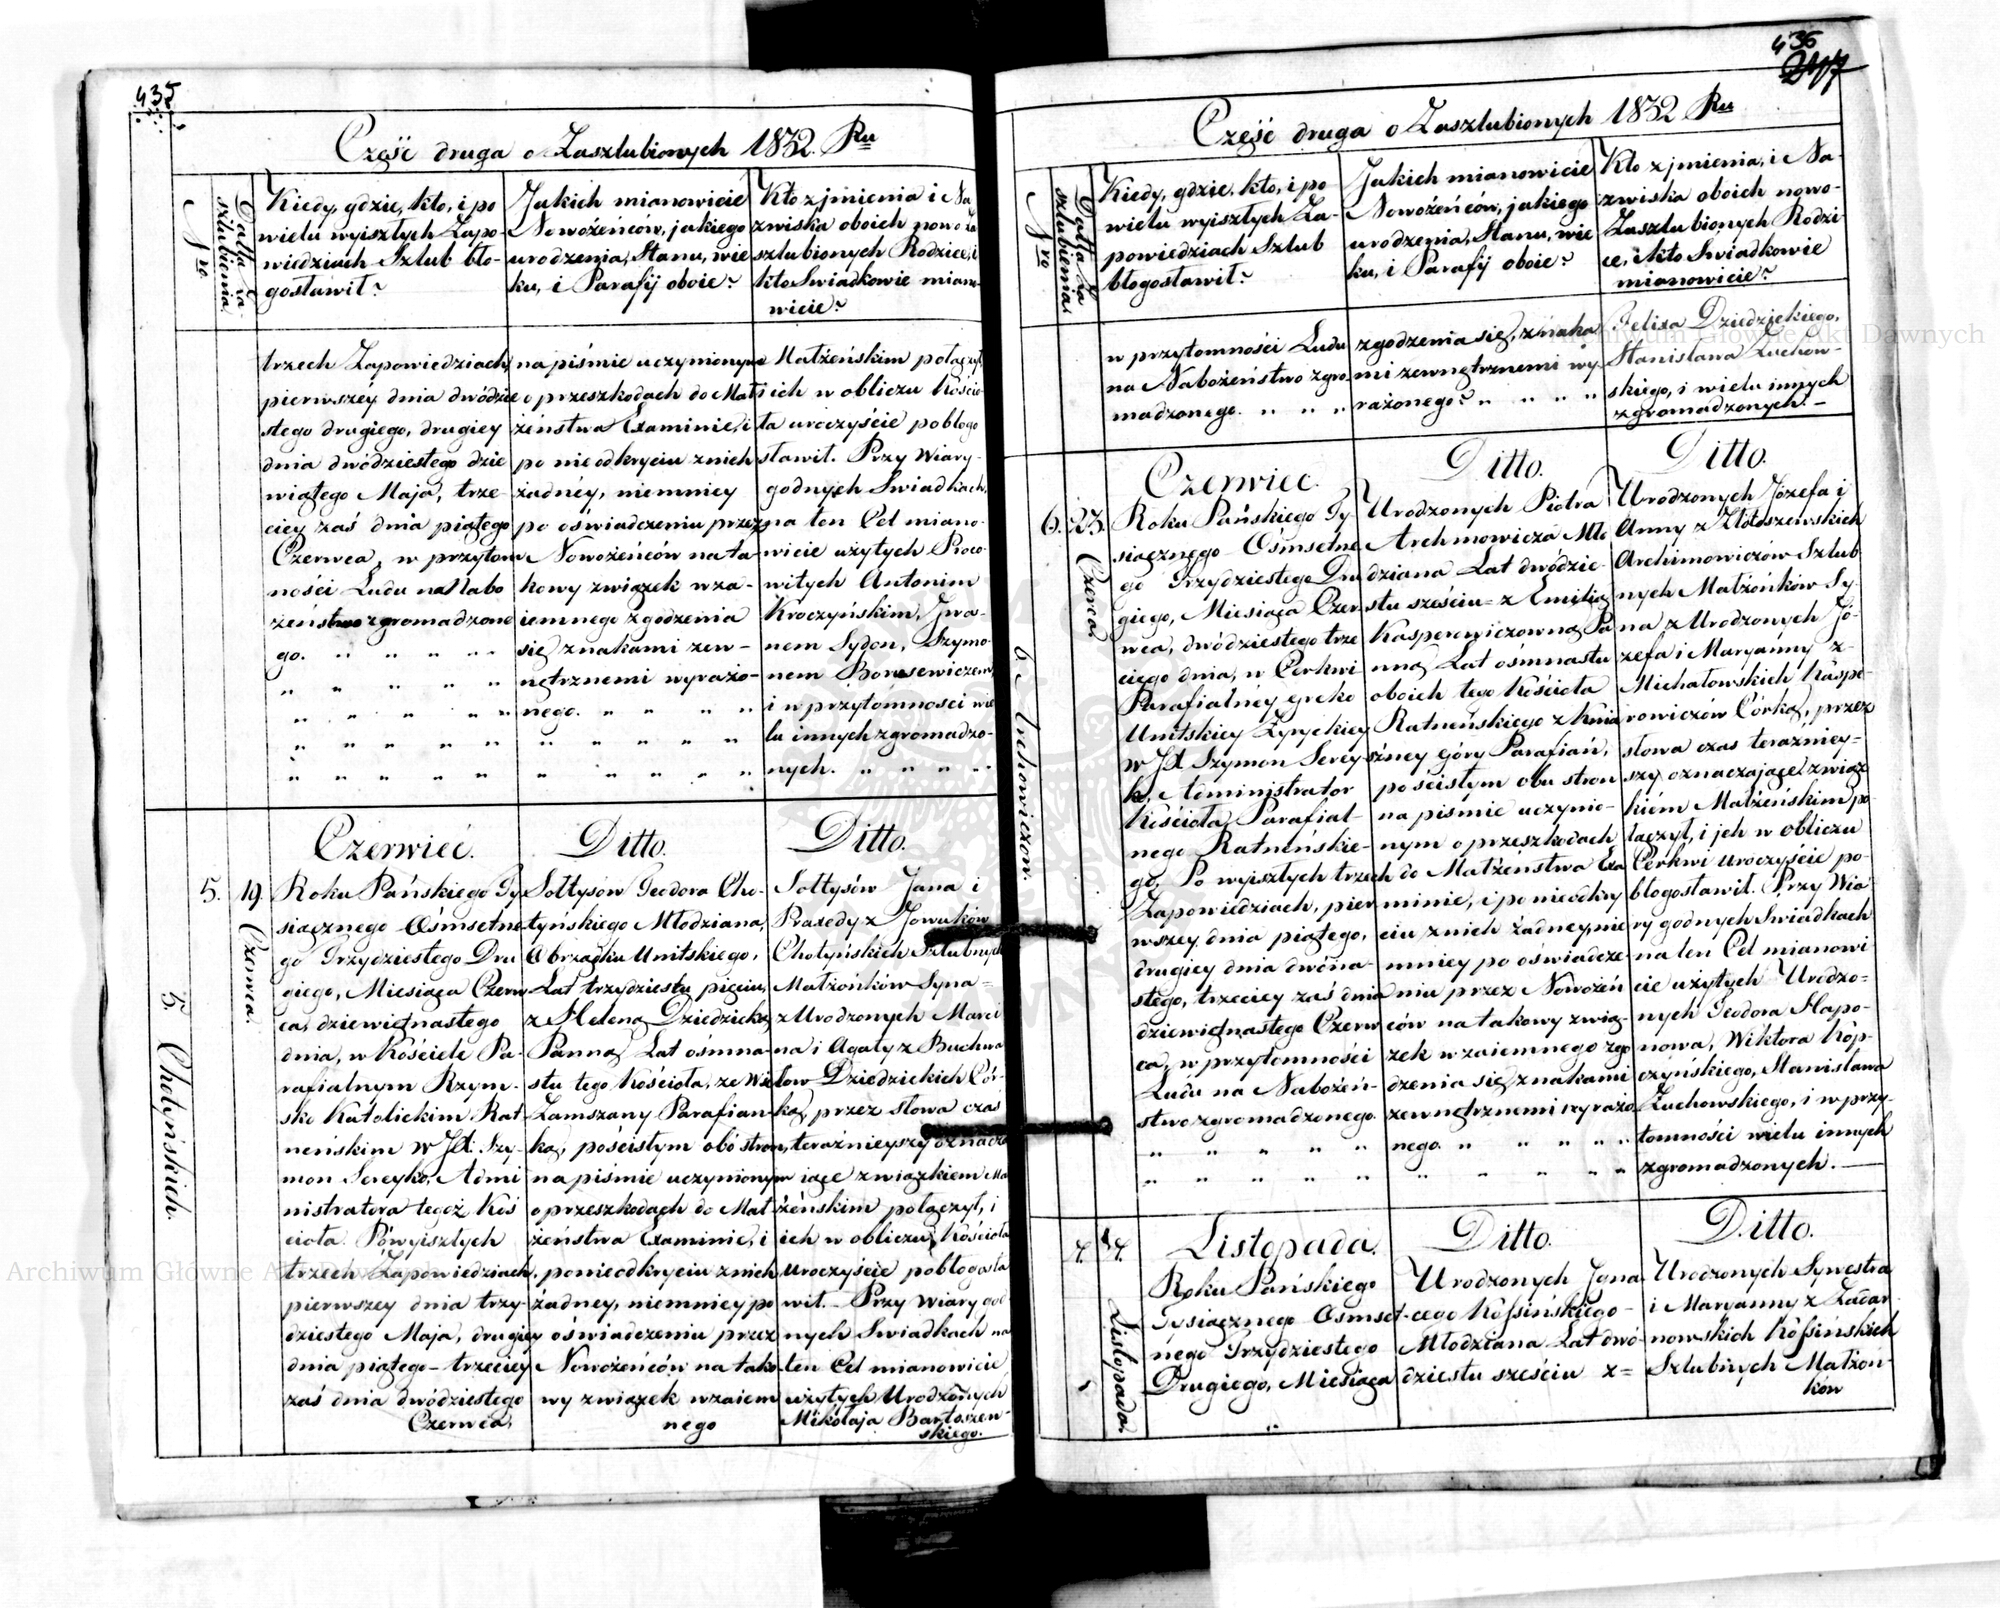 435
Część druga o Zaszlubionych 1832. Ru
Nro
Datta Za
szlubienia
Kiedy, gdzie, kto, i po
wielu wyisztych Zapo-
wiedziach Szlub bło-
gosławił?
Jakich mianowicie
Nowożeńców, jakiego
urodzenia, Stanu, wie
ku, i Parafij oboie?
Kto z jmienia i Na
zwiska oboich nowo za
szlubionych Rodzice, i
kto Swiadkowie miano-
wicie?
trzech Zapowiedziach
pierwszéy dnia dwódzie
stego drugiego, drugiey
dnia dwódziestego dzie
wiątego Maja, trze
ciey zaś dnia piątego
Czerwca, w przytom
ności Ludu na Nabo
żeństwo zgromadzone
go.
na piśmie uczynionym
o przeszkodach do Mał
żeństwa Examinie, i
po nieodkryciu z nich
żadnéy, niemniey
po oświadczeniu przez
Nowożeńców na ta
kowy związek wza-
iemnego zgodzenia
się znakami zew-
nętrznemi wyrażo-
nego.
Małżeńskim połączył,
i ich w obliczu Kościo
ła uroczyście pobłogo
sławił. Przy Wiary-
godnych Swiadkach,
na ten Cel miano-
wicie użytych Praco-
witych Antonim
Kroczyńskim, Jwa-
nem Sydon, Szymo-
nem Borusewiczem,
i w przytómności wie
lu innych zgromadzo-
nych.
5.
19
Czerwca.
5. Chotyńskich.
Czerwiec.
Roku Pańskiego Ty
siącznego Ośmsetne
go Trzydziestego Dru
giego, Miesiąca Czerw
ca, dziewiętnastego
dnia, w Kościele Pa-
rafialnym Rzym-
sko Katolickim Rat-
neńskim W JX. Szy-
mon Sereyko, Admi
nistratora tegoż Koś
cioła. Pówyisztych
trzech Zapowiedziach,
pierwszey dnia trzy-
dziestego Maja, drugiey
dnia piątego - trzeciey
zaś dnia dwódziestego
Czerwca,
Ditto.
Sołtysów Teodora Cho-
tyńskiego Młodziana,
Obrządku Unitskiego,
Lat trzydziestu pięciu,
z Heleną Dziedzicką
Panną Lat ośmna-
stu tego Kościoła, ze Wsi
Zamszany Parafian-
ką, pościstym obó stron,
na piśmie uczynionym
o przeszkodach do Mał-
żeństwa Examinie, i
ponieodkryciu z nich
żadney, niemniey po
oświadczeniu przez
Nowożeńców na tako-
wy związek wzaiem
nego
Ditto.
Sołtysów Jana i
Praxedy z Jowuków
Chotyńskich Szlubnych
Małżonków Syna =
z Urodzonych Marci
na i Agaty z Buchwa
łow Dziedzickich Cór-
ką, przez słowa czas
teraźnieyszy oznacza
iące związkiem Ma
żeńskim połączył, i
ich w obliczu Kościoła
uroczyście pobłogosła
wił. - Przy Wiary god-
nych Swiadkach na
ten Cel mianowicie
użytych Urodzonych
Mikołaja Bartoszew-
skiego.
436
247
Część druga o Zaszlubionych 1832 Ru
Nro
Datta Za
szlubienia
Kiedy, gdzie, kto, i po
wielu wyisztych Za-
powiedziach Szlub
błogosławił?
Jakich mianowicie
Nowożeńców, jakiego
urodzenia, Stanu, wie
ku, i Parafij oboie?
Kto z jmienia, i Na-
zwiska oboich nowo-
Zaszlubionych Rodzi
ce, i kto Swiadkowie
mianowicie?
w przytomności Ludu
na Nabożeństwo zgro
madzonego.
zgodzenia się, znaka
mi zewnętrznemi wy
rażonego?
Felixa Dziedzickiego,
Stanisława Zuchow-
skiego, i wielu innych
zgromadzonych. -
6.
23.
Czerca
6. Archowiczow.
Czerwiec.
Roku Pańskiego Ty-
siącznego Ośmsetne
go Trzydziestego Dru
giego, Miesiąca Czer
wca, dwódziestego trze
ciego dnia, w Cerkwi
Parafialnéy greko
Unitskiey Zyryckiey
W JX Szymon Serey
ko, Administrator
Kościoła Parafial-
nego Ratneńskie-
go, Po wyisztych trzech
Zapowiedziach, pier
wszey dnia piątego,
drugiey dnia dwóna-
stego, trzeciey zaś dnia
dziewiętnastego Czerw
ca, w przytomności
Ludu na Nabożeń-
stwo zgromadzonego.
Ditto.
Urodzonych Piotra
Archmowicza Mło
dziana Lat dwódzie-
stu sześciu = z Emilią
Kasperowiczowną Pa
nną Lat ośmnastu
oboich tego Kościoła
Ratneńskiego z Knia
źney góry Parafiań,
po ścistym obu stron
na piśmie uczynio-
nym o przeszkodach
do Małżeństwa Exa
minie, i po nieodkry
ciu z nich żadney, nie
mniey po oświadcze-
niu przez Nowożeń
ców na takowy zwią-
zek wzaiemnego zgo
dzenia się, znakami
zewnętrznemi wyrażo
nego.
Ditto.
Urodzonych Józefa i
Anny z Złótoszewskich
Archimowiczów Szlub
nych Małżónków Sy-
na z Urodzonych Jó-
zefa i Maryanny z-
Michałowskich Kaspe-
rowiczów Córką, przez
słowa czas teraźniey=
szy oznaczające, związ
kiém Małżeńskim po
łączył, i jch w obliczu
Cerkwi uroczyście po-
błogosławił. Przy Wia
ry godnych Swiadkach
na ten Cel mianowi
cie użytych Urodzo=
nych Teodora Hapo-
nowa, Wiktora Kóp-
czyńskiego, Stanisława
Zuchowskiego, i w przy-
tomności wielu innych
zgromadzonych.
7.
7.
Listopada.
Listopada.
Roku Pańskiego
Tysiącznego Osmset-
nego Trzydziestego
Drugiego, Miesiąca
Ditto.
Urodzonych Jgna
cego Kossińskiego -
Młodziana Lat dwó-
dziestu sześciu z=
Ditto.
Urodzonych Sywestra
i Maryanny z Zadar
nowskich Kossińskich
Szlubnych Małżon-
ków
Archiwum Główne Akt Dawnych
Archiwum Główne Akt Dawnych